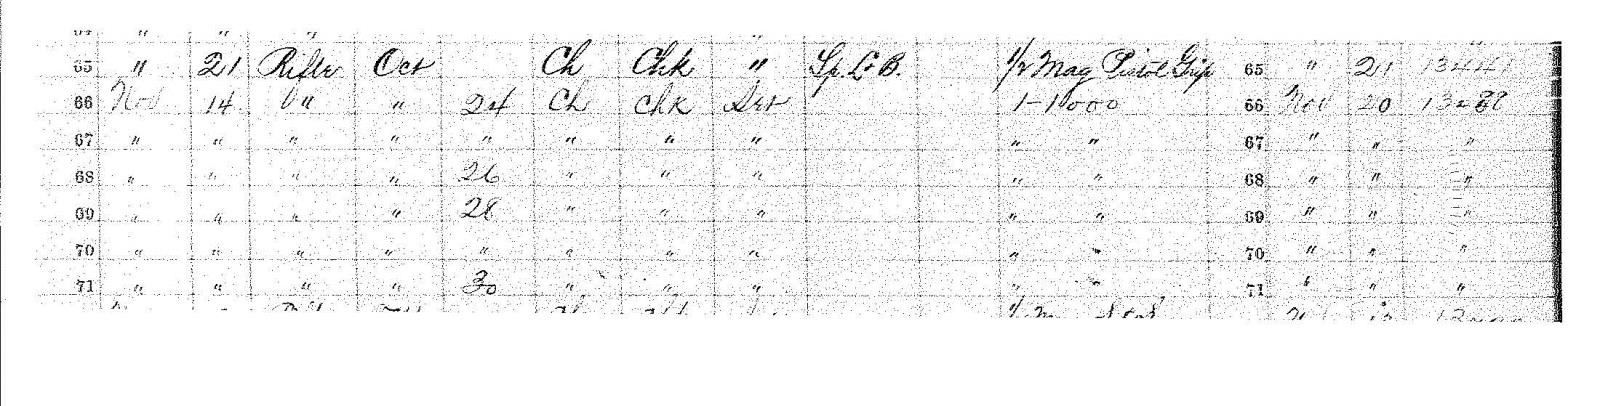 65 " 21 Rifle Oct Ch Chk " Sp. Lt. B. 1/2 Mag Pistol Grip 65 " 21 13441
66 Nov 14 " " 24 Ch Chk Set 1-1000 66 Nov 20
67 " " " " " " " " " " 67 " " "
68 " " " " 26 " " " " " 68 " " "
69 " " " " 28 " " " " " 69 " " "
70 " " " " " " " " " " 70 " " "
71 " " " " 30 " " " " " 71 " " "